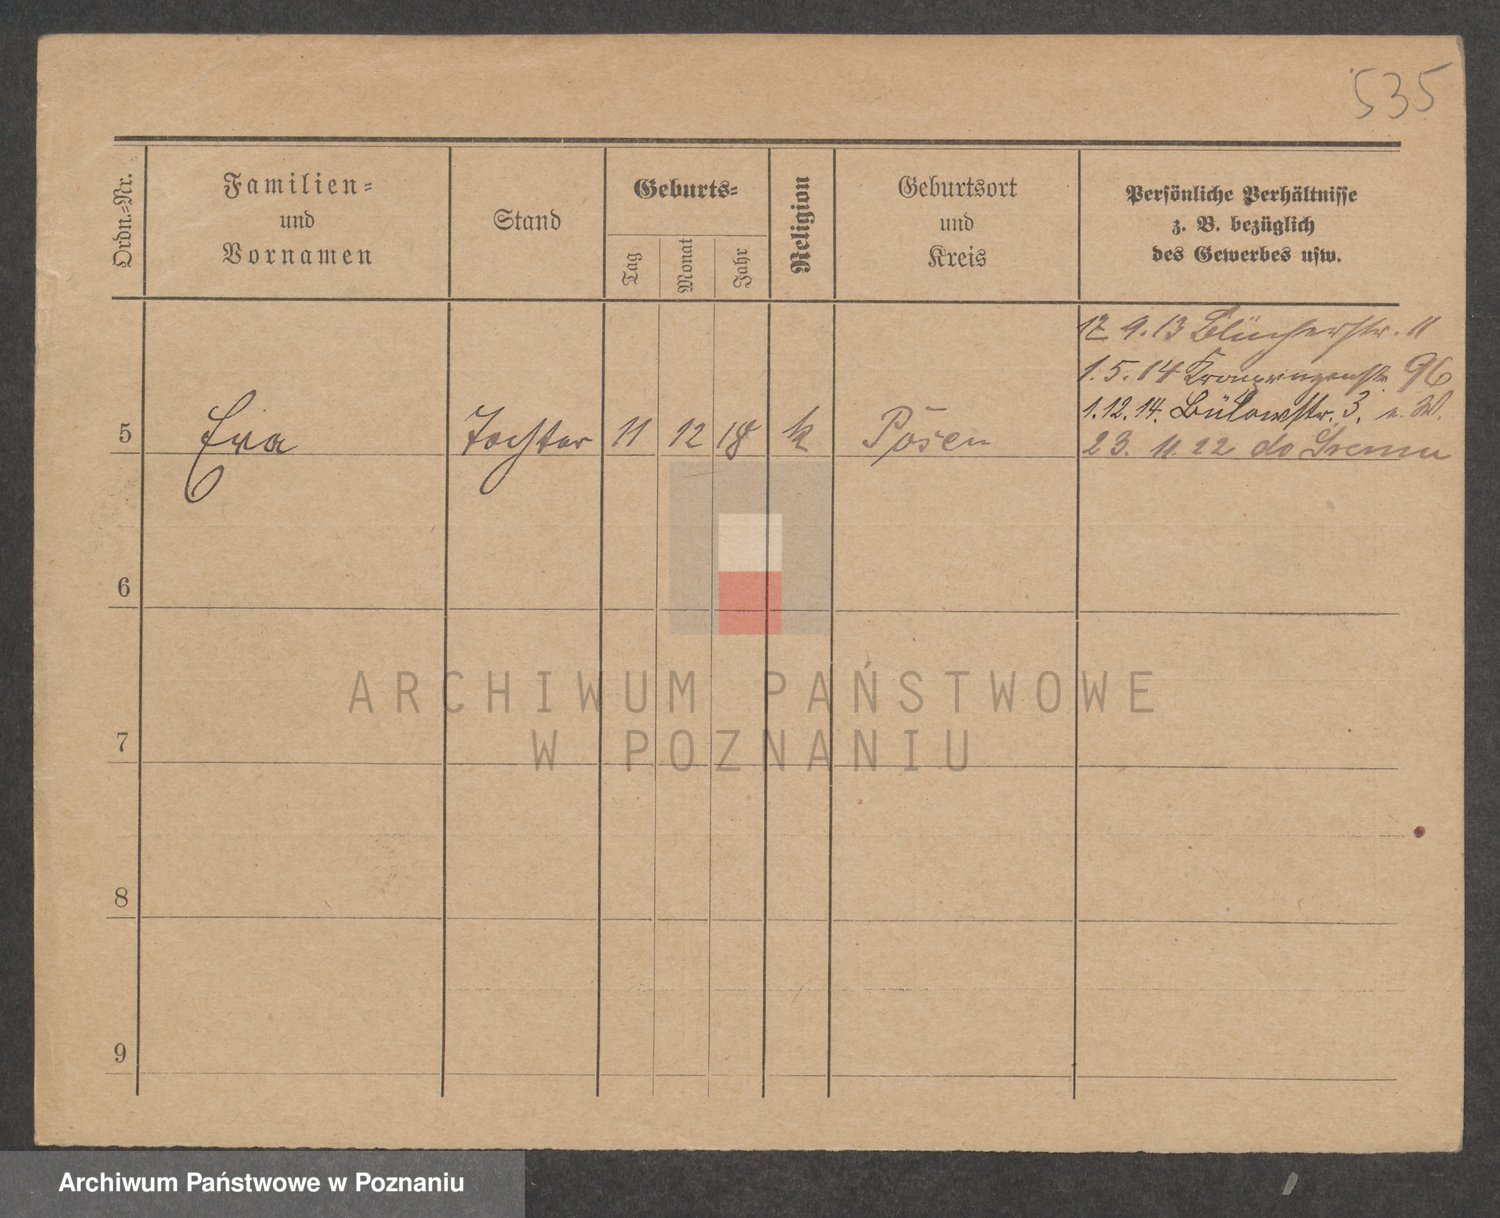 535
Ordn.-Nr.
Familien-
und
Vornamen
Stand
Geburts-
Tag
Monat
Jahr
Religion
Geburtsort
und
Kreis
Persönliche Verhältnisse
z. B. bezüglich
des Gewerbes usw.
17 9.13 Blücherstr. 11
1.5.14 Kronprinzenstr. 96
1.12.14. Bülowstr. 3.
5 Eva Tochter 11 12 18 k Posen 23. 11. 22 do Śremu
6
7
8
9
ARCHIWUM PAŃSTWOWE
W POZNANIU
Archiwum Państwowe w Poznaniu